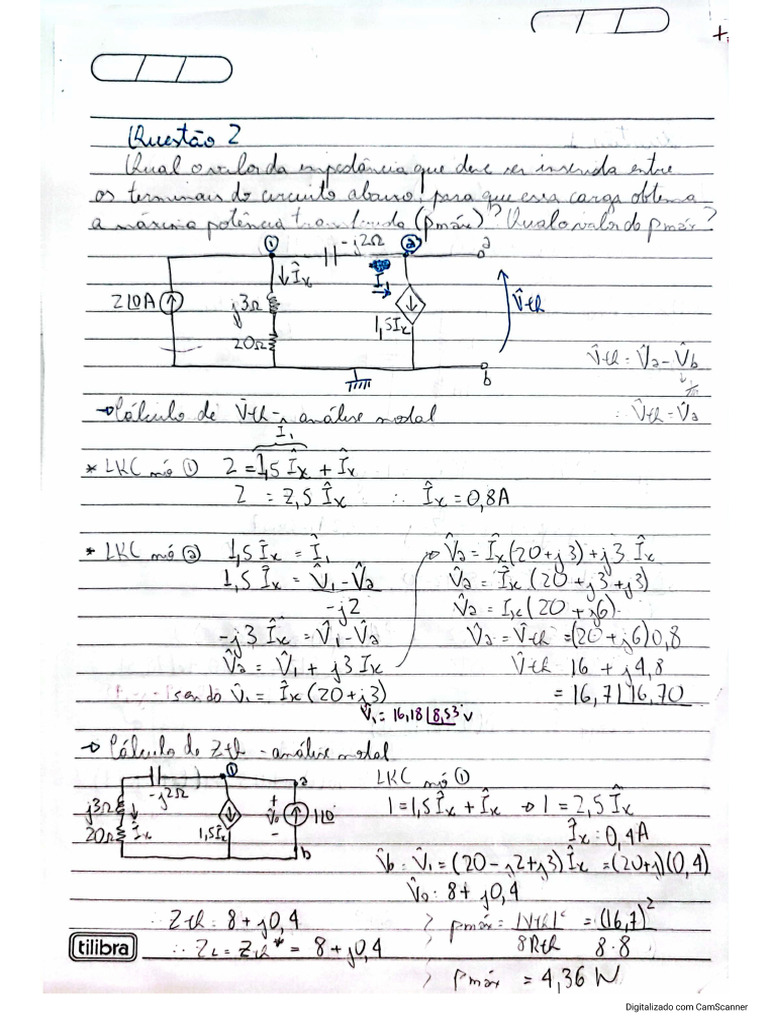 Questão 2
Qual o valor da impedância que deve ser inserida entre
os terminais do circuito abaixo, para que essa carga obtenha
a máxima potência transferida (pmáx)? Qual o valor do pmáx?
① -j2Ω ② a
2∠0A ↓Îx j3Ω 20Ω I₁ 1,5Ix V̂th b
V̂th = V̂a - V̂b
∴ V̂th = V̂a
→ Cálculo de V̂th - análise nodal
Î₁
* LKC nó ① 2 = 1,5 Îx + Îx
2 = 2,5 Îx ∴ Îx = 0,8A
* LKC nó ② 1,5 Îx = Î₁
1,5 Îx = V̂₁ - V̂a
-j2
-j3 Îx = V̂₁ - V̂a
V̂a = V̂₁ + j3 Ix
sendo V̂₁ = Îx (20+j3)
V̂₁ = 16,18∠8,53° v
V̂a = Îx (20+j3) + j3 Îx
V̂a = Îx (20+j3+j3)
V̂a = Ix (20+j6).
V̂a = V̂th = (20+j6) 0,8
V̂th 16 + j4,8
= 16,7∠16,70
→ Cálculo de Zth - análise nodal
-j2Ω ① a
j3Ω 20Ω Îx 1,5Ix + V̂o - 1∠0° b
LKC nó ①
1 = 1,5 Îx + Îx → 1 = 2,5 Îx
Îx = 0,4A
V̂b = V̂₁ = (20-j2+j3) Îx = (20+j)(0,4)
V̂o = 8 + j0,4
∴ Zth = 8 + j0,4
∴ ZL = Zth* = 8 + j0,4
pmáx = |Vth|² = (16,7)²
8Rth 8.8
pmáx = 4,36 W
tilibra
Digitalizado com CamScanner